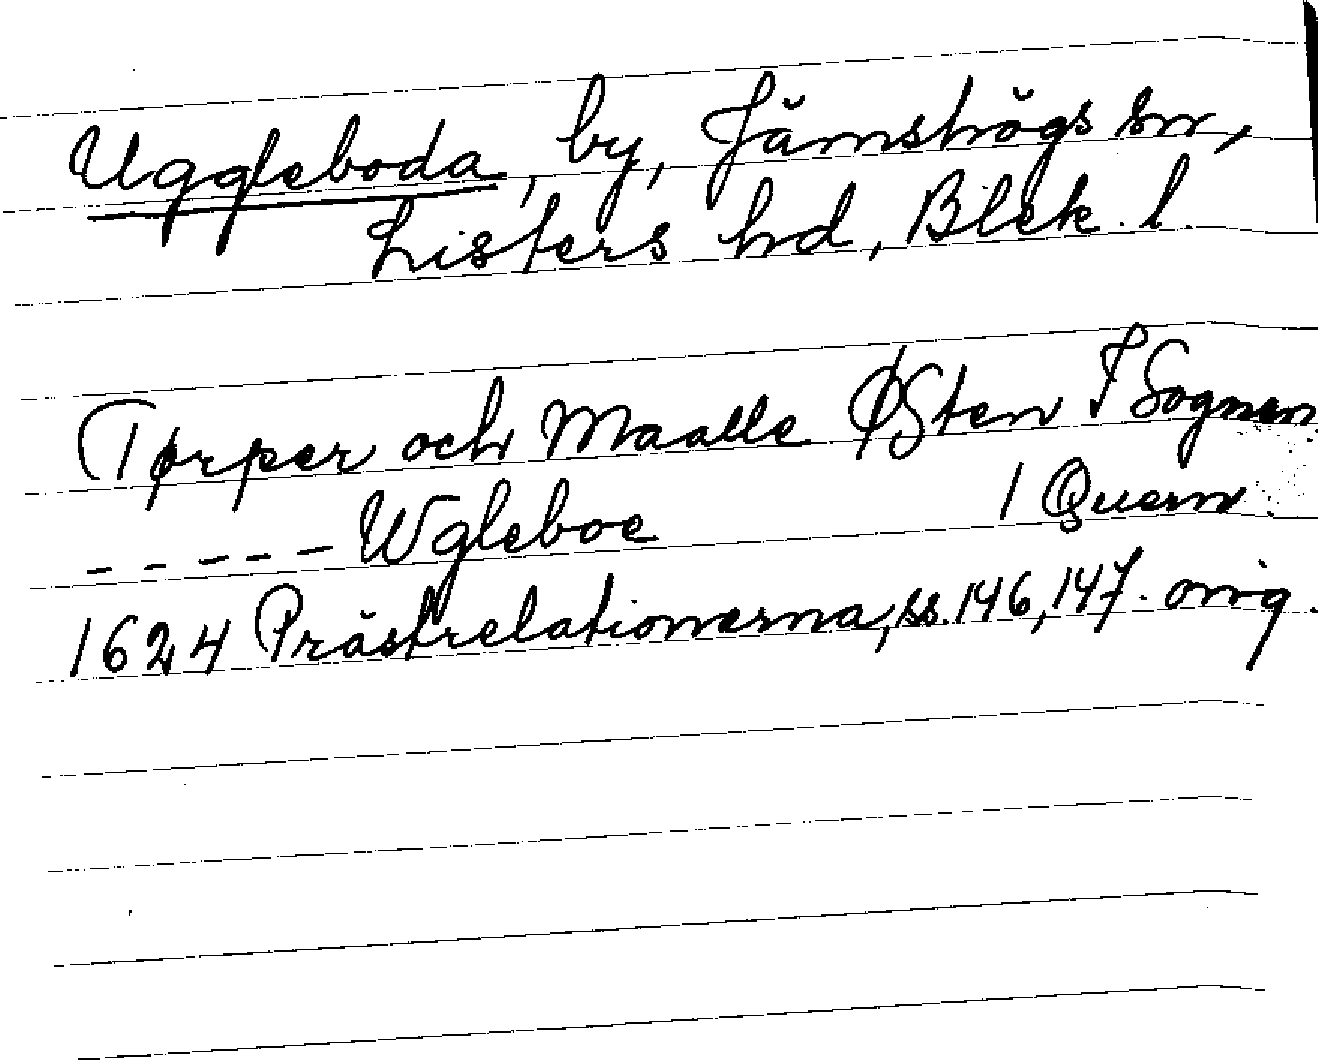 Uggleboda, by, Jämshögs sn,
Listers hd, Blek. l.
Tørper och Maalle Østen I Sognen
- - - - - Wgleboe 1 Quern
1624 Prästrelationerna, ss. 146, 147. orig.